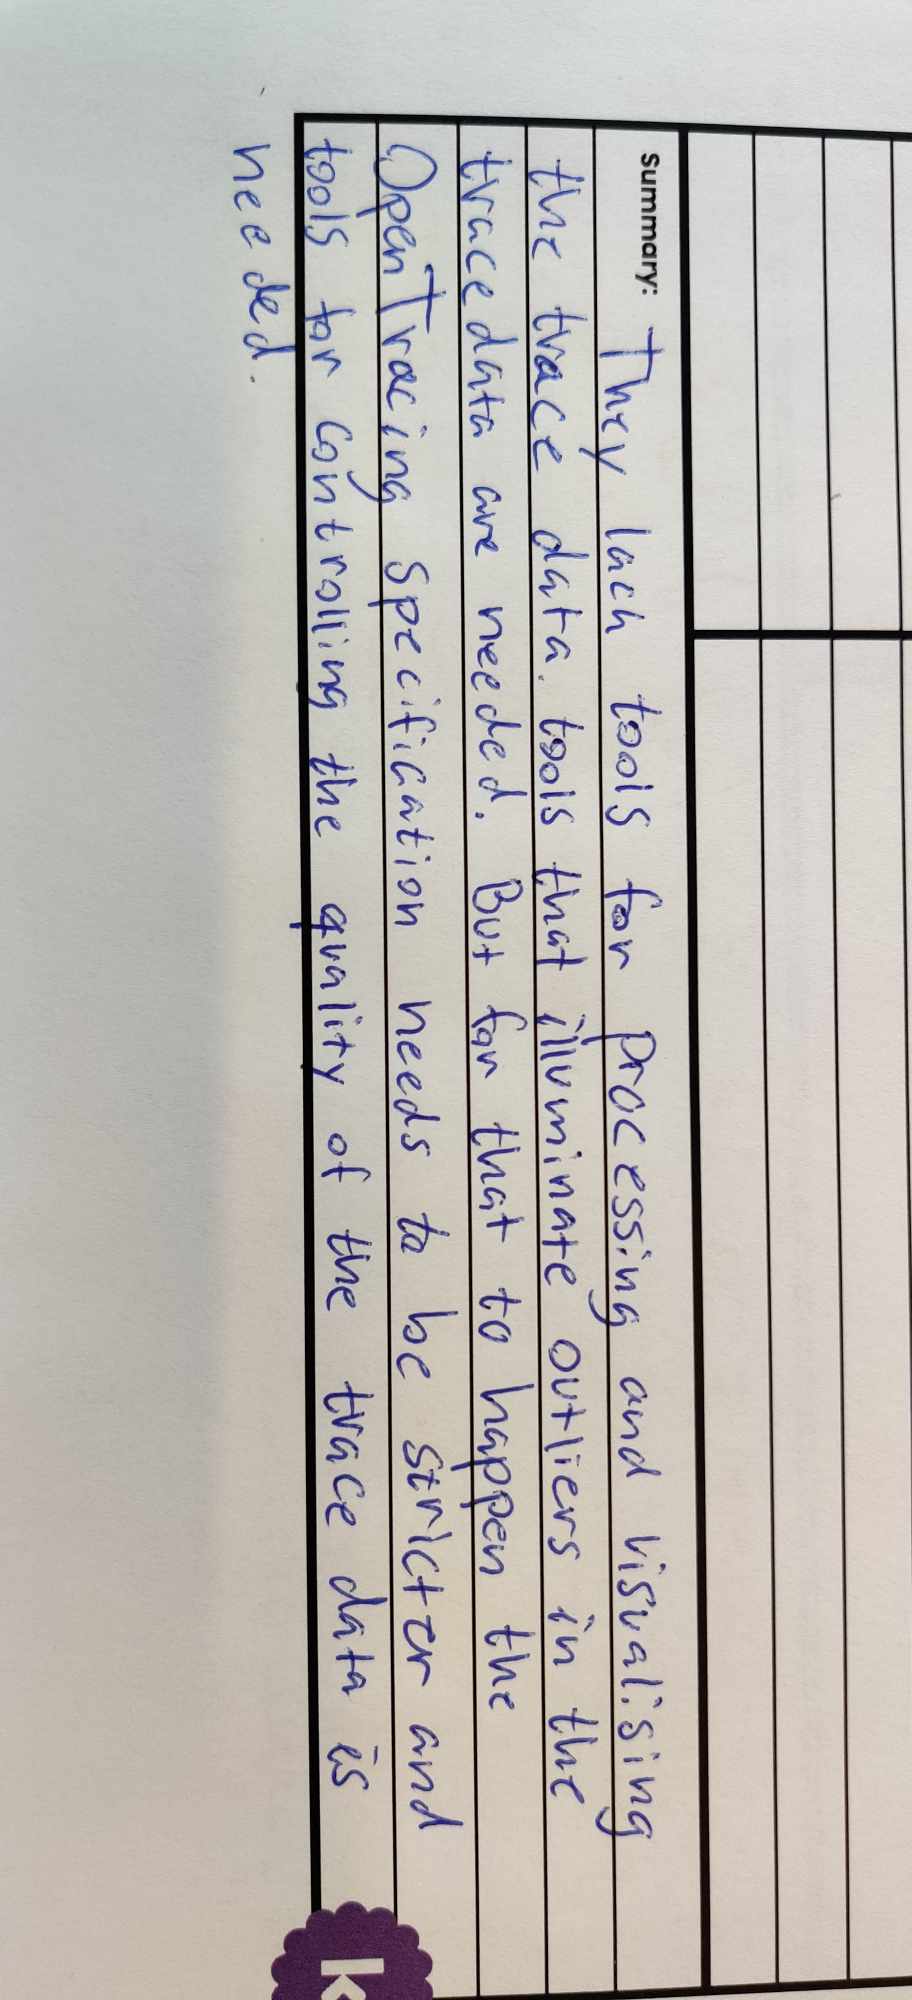 summary: They lack tools for processing and visualising
the trace data. tools that illuminate outliers in the
trace data are needed. But for that to happen the
OpenTracing specification needs to be stricter and
tools for controlling the quality of the trace data is
needed.
k